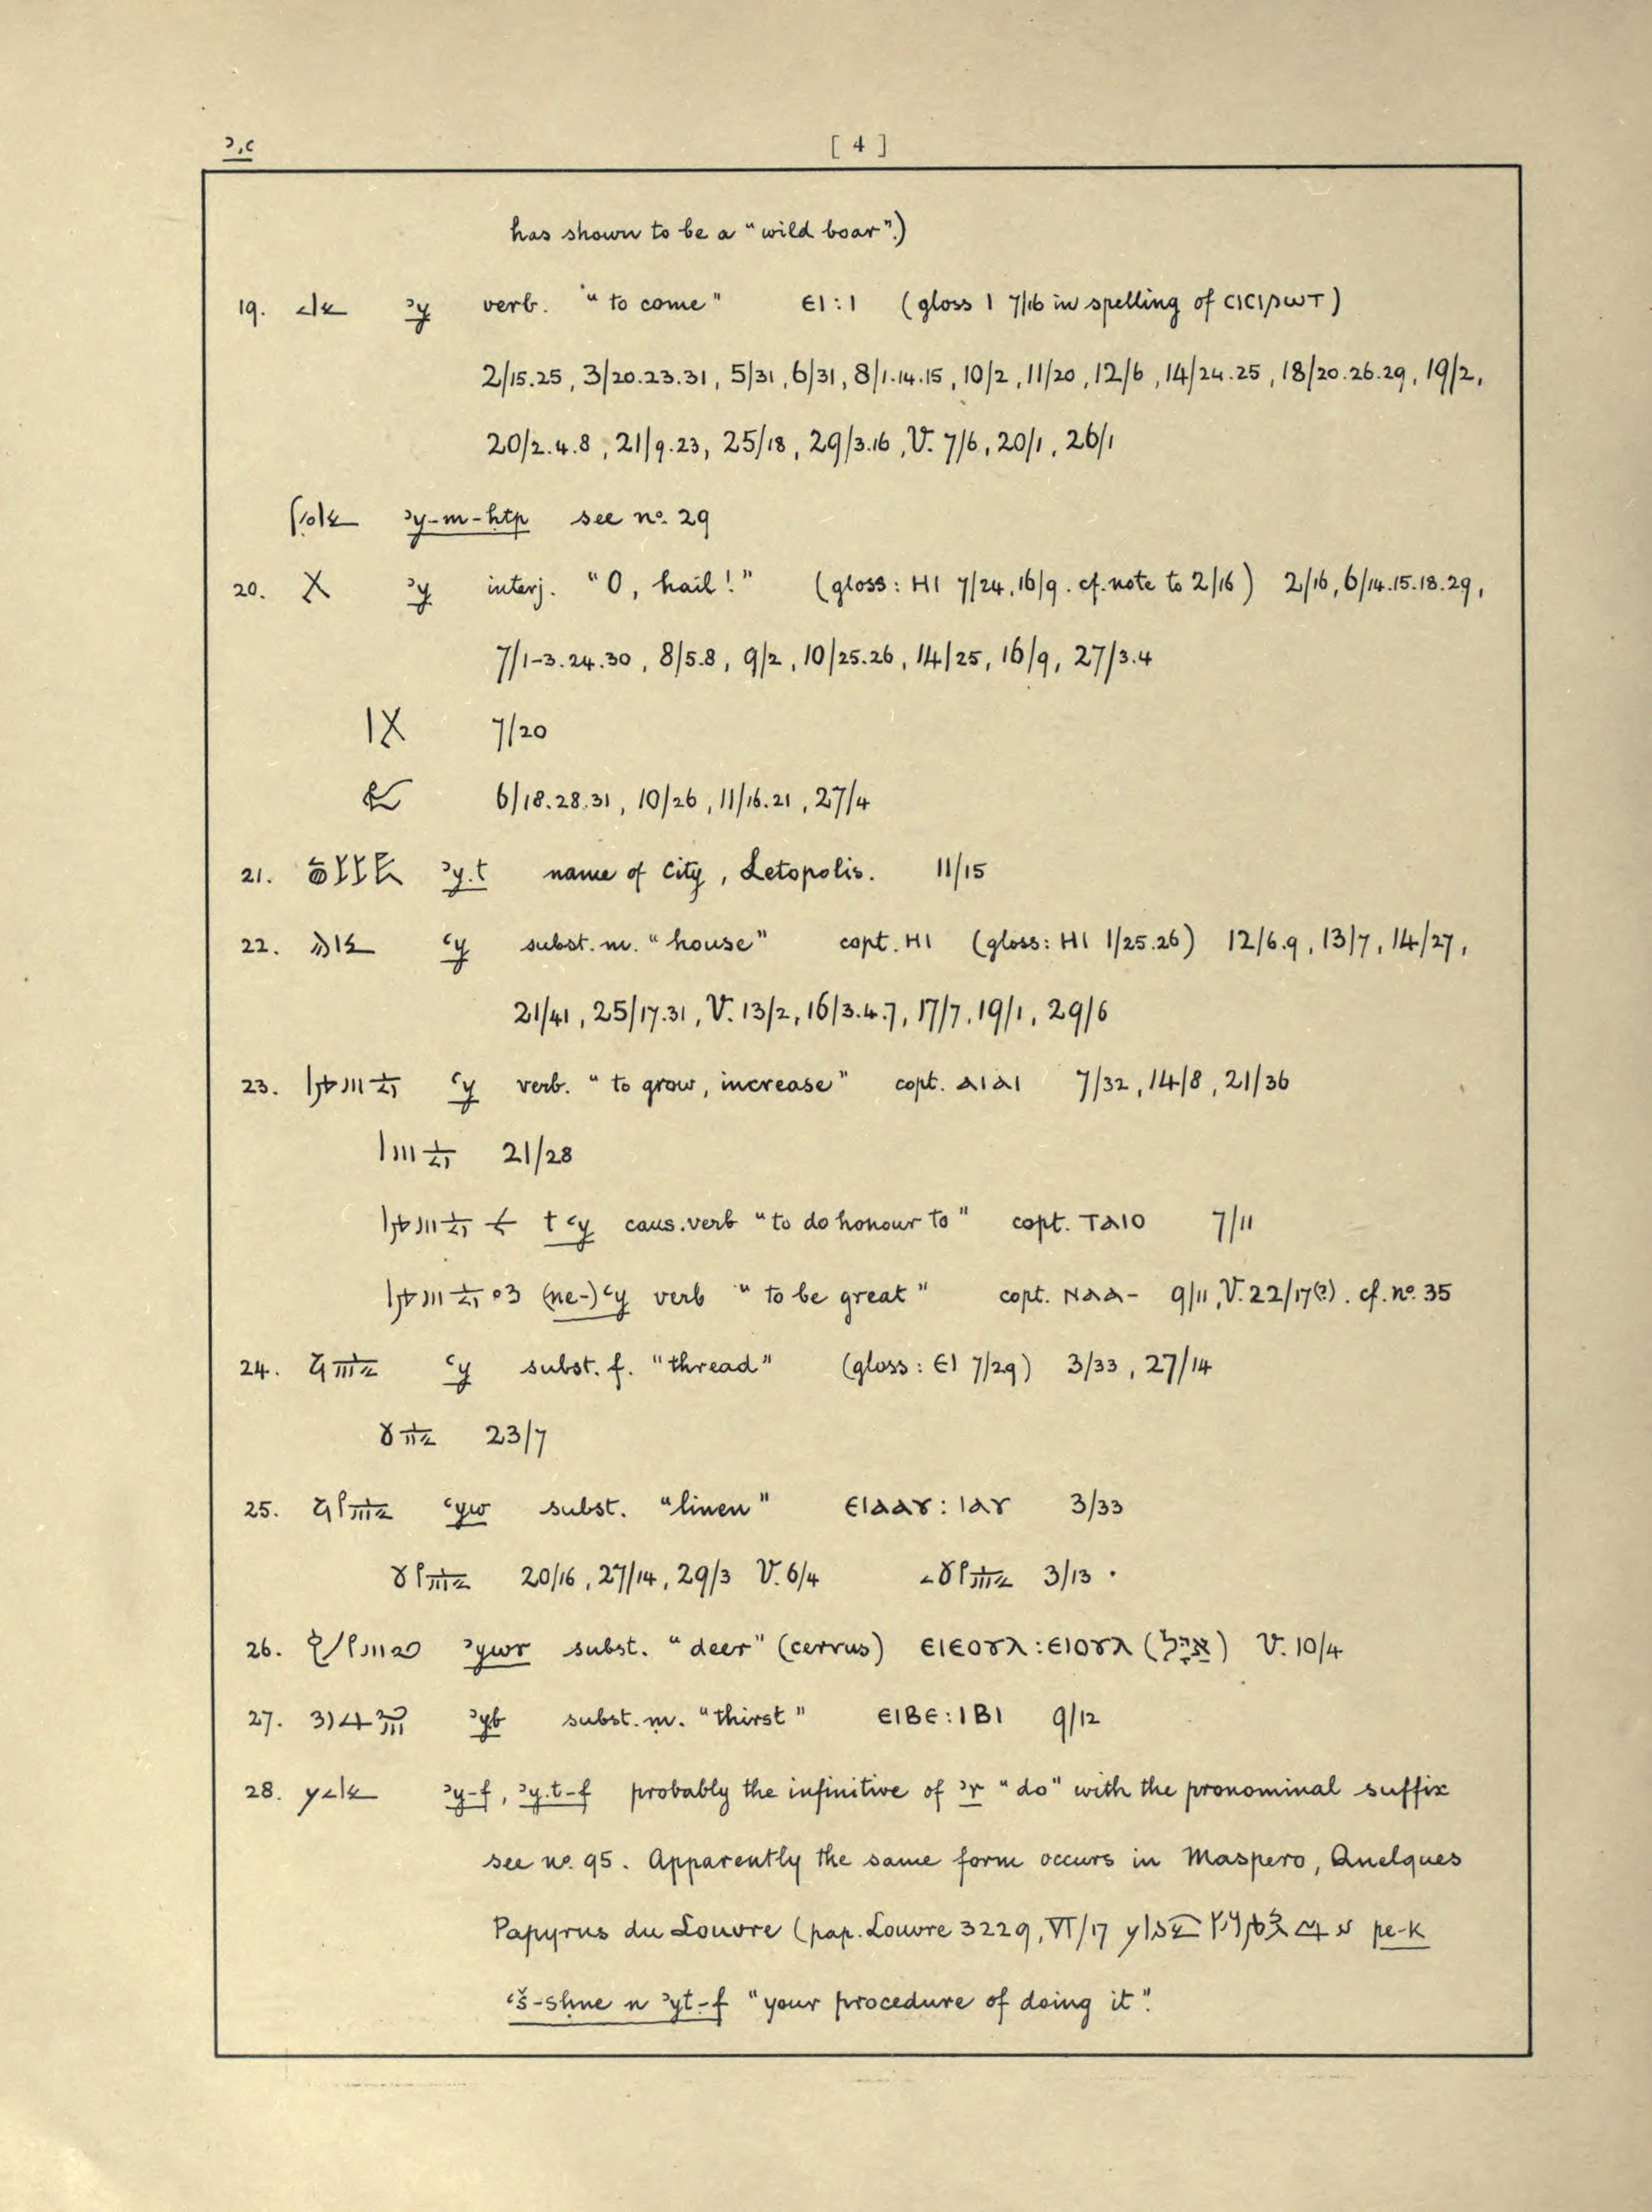 ꜣ,ꜥ [ 4 ]
has shown to be a "wild boar".)
19. ꜣy verb. "to come" ⲉⲓ : ⲓ (gloss ⲓ 7/16 in spelling of ⲥⲓⲥⲓⲣⲱⲧ)
2/15.25, 3/20.23.31, 5/31, 6/31, 8/1.14.15, 10/2, 11/20, 12/6, 14/24.25, 18/20.26.29, 19/2,
20/2.4.8, 21/9.23, 25/18, 29/3.16, V. 7/6, 20/1, 26/1
ꜣy-m-ḥtp see no. 29
20. ꜣy interj. "O, hail!" (gloss: ⲏⲓ 7/24, 16/9. cf. note to 2/16) 2/16, 6/14.15.18.29,
7/1-3.24.30, 8/5.8, 9/2, 10/25.26, 14/25, 16/9, 27/3.4
7/20
6/18.28.31, 10/26, 11/16.21, 27/4
21. ꜣy.t name of City, Letopolis. 11/15
22. ꜥy subst. m. "house" copt. ⲏⲓ (gloss: ⲏⲓ 1/25.26) 12/6.9, 13/7, 14/27,
21/41, 25/17.31, V. 13/2, 16/3.4.7, 17/7, 19/1, 29/6
23. ꜥy verb. "to grow, increase" copt. ⲁⲓⲁⲓ 7/32, 14/8, 21/36
21/28
t ꜥy caus. verb "to do honour to" copt. ⲧⲁⲓⲟ 7/11
(ne-)ꜥy verb "to be great" copt. ⲛⲁⲁ- 9/11, V. 22/17(?). cf. no. 35
24. ꜥy subst. f. "thread" (gloss: ⲉⲓ 7/29) 3/33, 27/14
23/7
25. ꜥyw subst. "linen" ⲉⲓⲁⲁⲩ : ⲓⲁⲩ 3/33
20/16, 27/14, 29/3 V. 6/4 3/13 ·
26. ꜣywr subst. "deer" (cervus) ⲉⲓⲉⲟⲩⲗ : ⲉⲓⲟⲩⲗ (אַיָּל) V. 10/4
27. ꜣyb subst. m. "thirst" ⲉⲓⲃⲉ : ⲓⲃⲓ 9/12
28. ꜣy-f, ꜣy.t-f probably the infinitive of ꜣr "do" with the pronominal suffix
see no. 95. Apparently the same form occurs in Maspero, Quelques
Papyrus du Louvre (pap. Louvre 3229, VI/17 pe-k
ꜥš-sḥne n ꜣyt-f "your procedure of doing it".